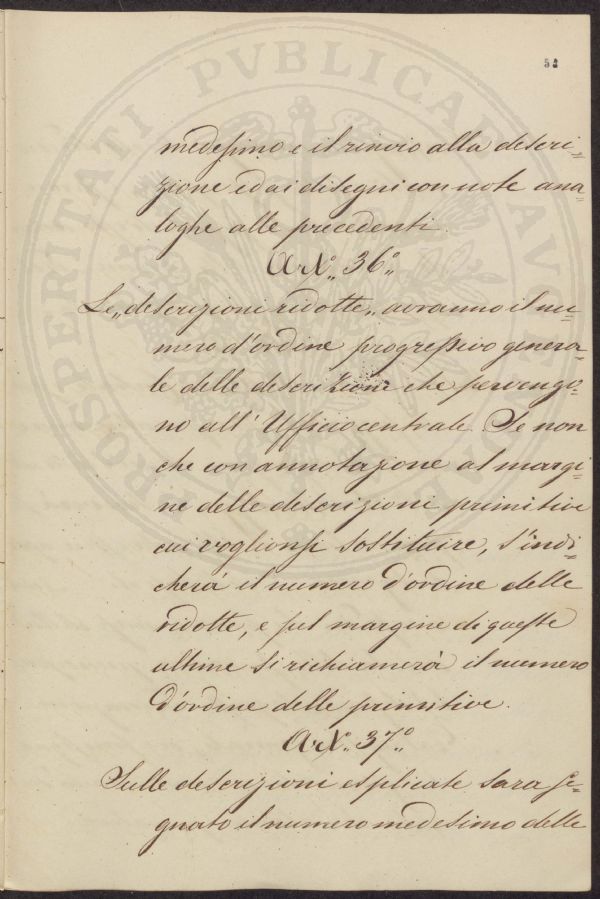 54
medesimo e il rinvio alla descri=
zione ed ai disegni con note ana=
loghe alle precedenti.
Art.° 36.°
Le "descrizioni ridotte" avranno il nu=
mero d'ordine progressivo genera=
le delle descrizioni che pervengo=
no all'Ufficio centrale. Se non
che con annotazione al margi=
ne delle descrizioni primitive
cui voglionsi sostituire, s'indi=
cherà il numero d'ordine delle
ridotte, e sul margine di queste
ultime si richiamerà il numero
d'ordine delle primitive.
Art.° 37.°
Sulle descrizioni esplicate sara se=
gnato il numero medesimo delle
PROSPERITATI PVBLICAE AVGENDAE